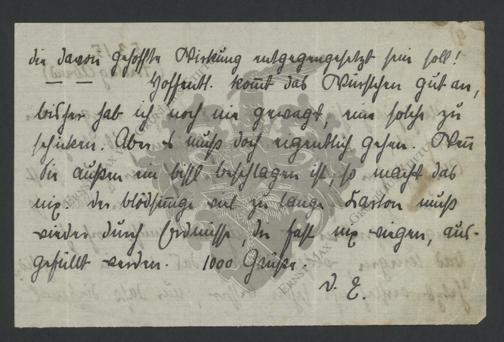 die davon gehoffte Wirkung entgegengesetzt sein soll!
Hoffentl. kommt das Würstchen gut an,
bisher hab ich noch nie gewagt, eine solche zu
schicken. Aber es muß doch eigentlich gehen. Wenn
die außen ein bissl beschlagen ist, so macht das
nix. Der blödsinnige viel zu lange Karton muß
wieder durch Erdnisse, die fast nix wiegen, aus-
gefüllt werden. 1000 Grüße.
D. E.